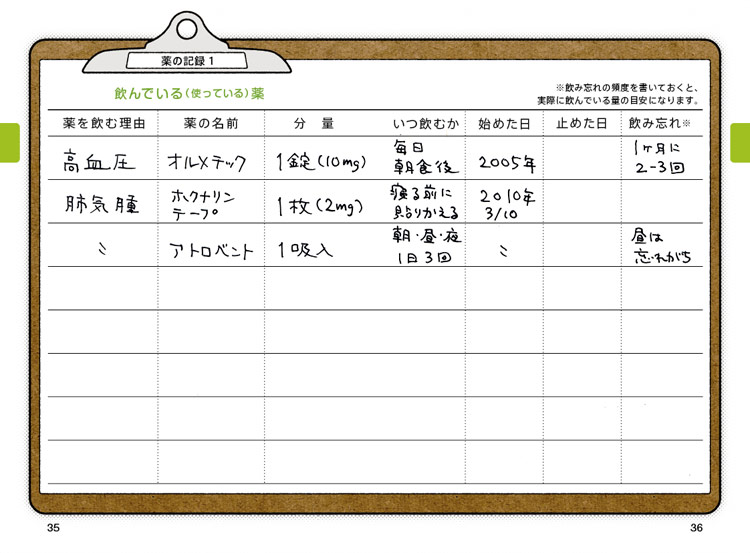 薬の記録 1
飲んでいる(使っている)薬
※飲み忘れの頻度を書いておくと、
実際に飲んでいる量の目安になります。
薬を飲む理由 薬の名前 分 量 いつ飲むか 始めた日 止めた日 飲み忘れ※
高血圧 オルメテック 1錠(10mg) 毎日 朝食後 2005年 1ヶ月に 2-3回
肺気腫 ホクナリン テープ 1枚(2mg) 寝る前に 貼りかえる 2010年 3/10
〃 アトロベント 1吸入 朝・昼・夜 1日3回 〃 昼は 忘れがち
35
36